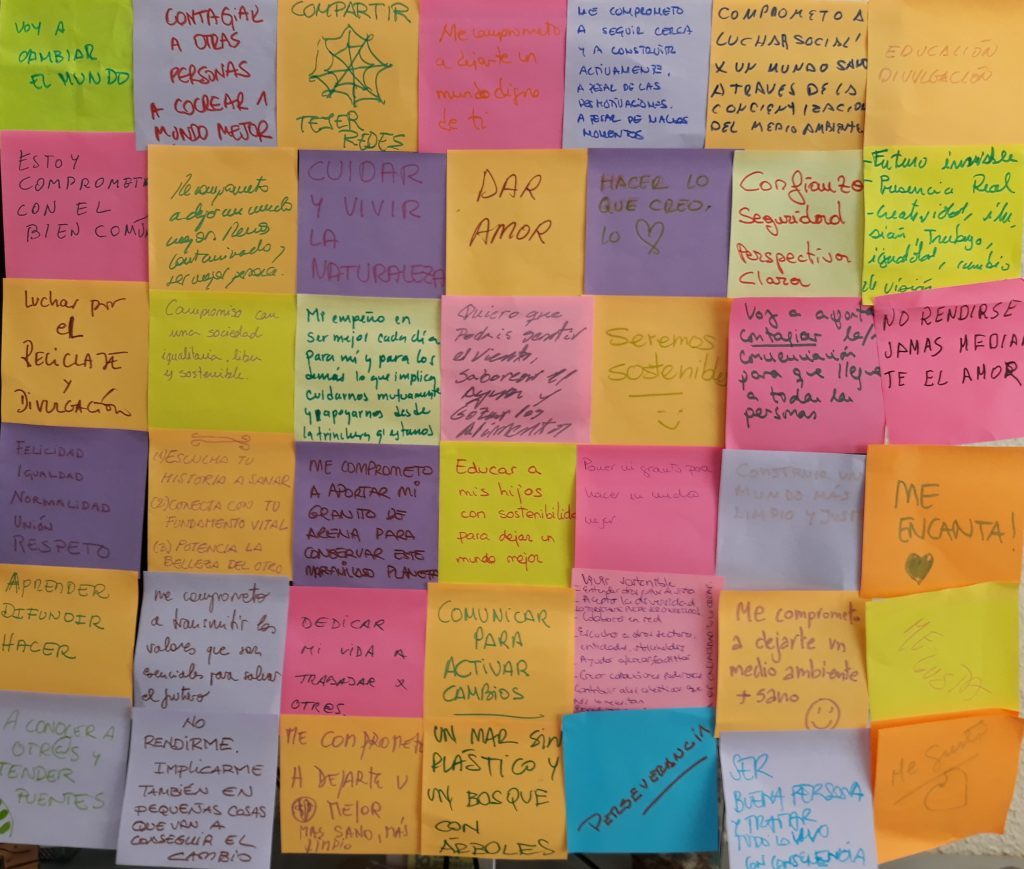 VOY A
CAMBIAR
EL MUNDO
CONTAGIAR
A OTRAS
PERSONAS
A COCREAR 1
MUNDO MEJOR
COMPARTIR
TEJER
REDES
Me comprometo
a dejarte un
mundo digno
de ti
ME COMPROMETO
A SEGUIR CERCA
Y A CONSTRUIR
ACTIVAMENTE,
A PESAR DE LAS
DESMOTIVACIONES.
A PESAR DE MALOS
MOMENTOS
COMPROMETO A
LUCHAR SOCIAL
X UN MUNDO SANO
A TRAVES DE LA
CONCIENCIZACION
DEL MEDIO AMBIENTE
EDUCACIÓN
DIVULGACIÓN
ESTOY
COMPROMETI
CON EL
BIEN COMÚN
Me comprometo
a dejar un mundo
mejor. Menos
contaminado,
ser mejor persona.
CUIDAR
Y VIVIR
LA
NATURALEZA
DAR
AMOR
HACER LO
QUE CREO,
lo
Confianza
Seguridad
Perspectiva
Clara
- Futuro invisible
- Presencia Real
- Creatividad, ilu
sión, Trabajo,
igualdad, cambio
de visión
Luchar por
el
RECICLAJE
Y
DIVULGACIÓN
Compromiso con
una sociedad
igualitaria, libre
y sostenible.
Mi empeño en
ser mejor cada día
para mí y para los
demás lo que implica
cuidarnos mutuamente
y apoyarnos desde
la trinchera q' estamos
Quiero que
Podáis sentir
el viento,
Saborear el
Agua y
Gozar los
Alimentos
Seremos
sostenible
Voy a aportar
contagiar la
concienciación
para que llegue
a todas las
personas
NO RENDIRSE
JAMAS MEDIAN
TE EL AMOR
FELICIDAD
IGUALDAD
NORMALIDAD
UNIÓN
RESPETO
(1) ESCUCHA TU
HISTORIA A SANAR
(2) CONECTA CON TU
FUNDAMENTO VITAL
(3) POTENCIA LA
BELLEZA DEL OTRO
ME COMPROMETO
A APORTAR MI
GRANITO DE
ARENA PARA
CONSERVAR ESTE
MARAVILLOSO PLANETA
Educar a
mis hijos
con sostenibilida
para dejar un
mundo mejor
Poner mi granito para
hacer un mundo
mejor
CONSTRUIR UN
MUNDO MÁS
LIMPIO Y JUST
ME
ENCANTA!
APRENDER
DIFUNDIR
HACER
me comprometo
a transmitir los
valores que son
esenciales para salvar
el futuro
DEDICAR
MI VIDA A
TRABAJAR X
OTR@S.
COMUNICAR
PARA
ACTIVAR
CAMBIOS
Vivir sostenible
- Aceptar la diversidad
- Colaborar en red
Me comprometo
a dejarte un
medio ambiente
+ sano
ME
GUSTA
A CONOCER A
OTR@S Y
TENDER
PUENTES
NO
RENDIRME.
IMPLICARME
TAMBIÉN EN
PEQUEÑAS COSAS
QUE VAN A
CONSEGUIR EL
CAMBIO
ME COMPROMETO
A DEJARTE U
MEJOR
MAS SANO, MÁS
LIMPIO
UN MAR SIN
PLÁSTICO Y
UN BOSQUE
CON
ÁRBOLES
PERSEVERANCIA
SER
BUENA PERSONA
Y TRATAR
TODO LO VIVO
CON CONSCIENCIA
Me Gusta